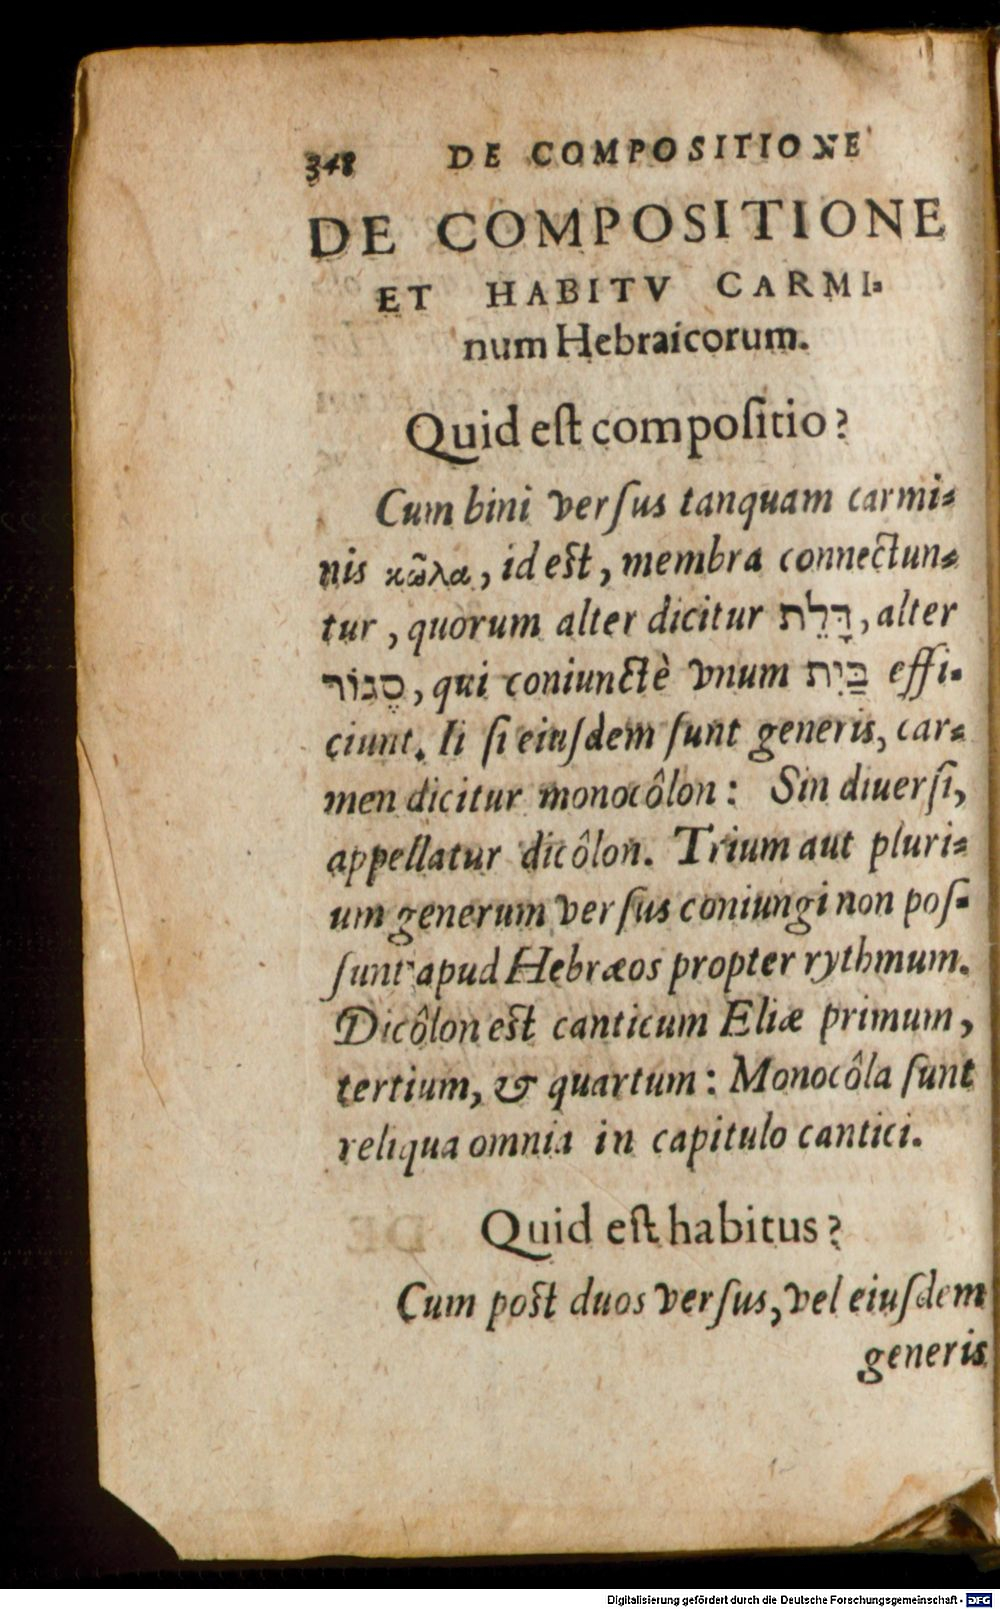 348 DE COMPOSITIONE
DE COMPOSITIONE
ET HABITV CARMI-
num Hebraicorum.
Quid eſt compoſitio?
Cum bini verſus tanquam carmi-
nis κῶλα, id eſt, membra connectun-
tur, quorum alter dicitur דָּלֵת, alter
סֶגוֹר, qui coniunctè vnum בַּיִת effi-
ciunt. Ii ſi eiuſdem ſunt generis, car-
men dicitur monocôlon: Sin diuerſi,
appellatur dicôlon. Trium aut pluri-
um generum verſus coniungi non poſ-
ſunt apud Hebræos propter rythmum.
Dicôlon eſt canticum Eliæ primum,
tertium, & quartum: Monocôla ſunt
reliqua omnia in capitulo cantici.
Quid eſt habitus?
Cum poſt duos verſus, vel eiuſdem
generis
Digitalisierung gefördert durch die Deutsche Forschungsgemeinschaft - DFG